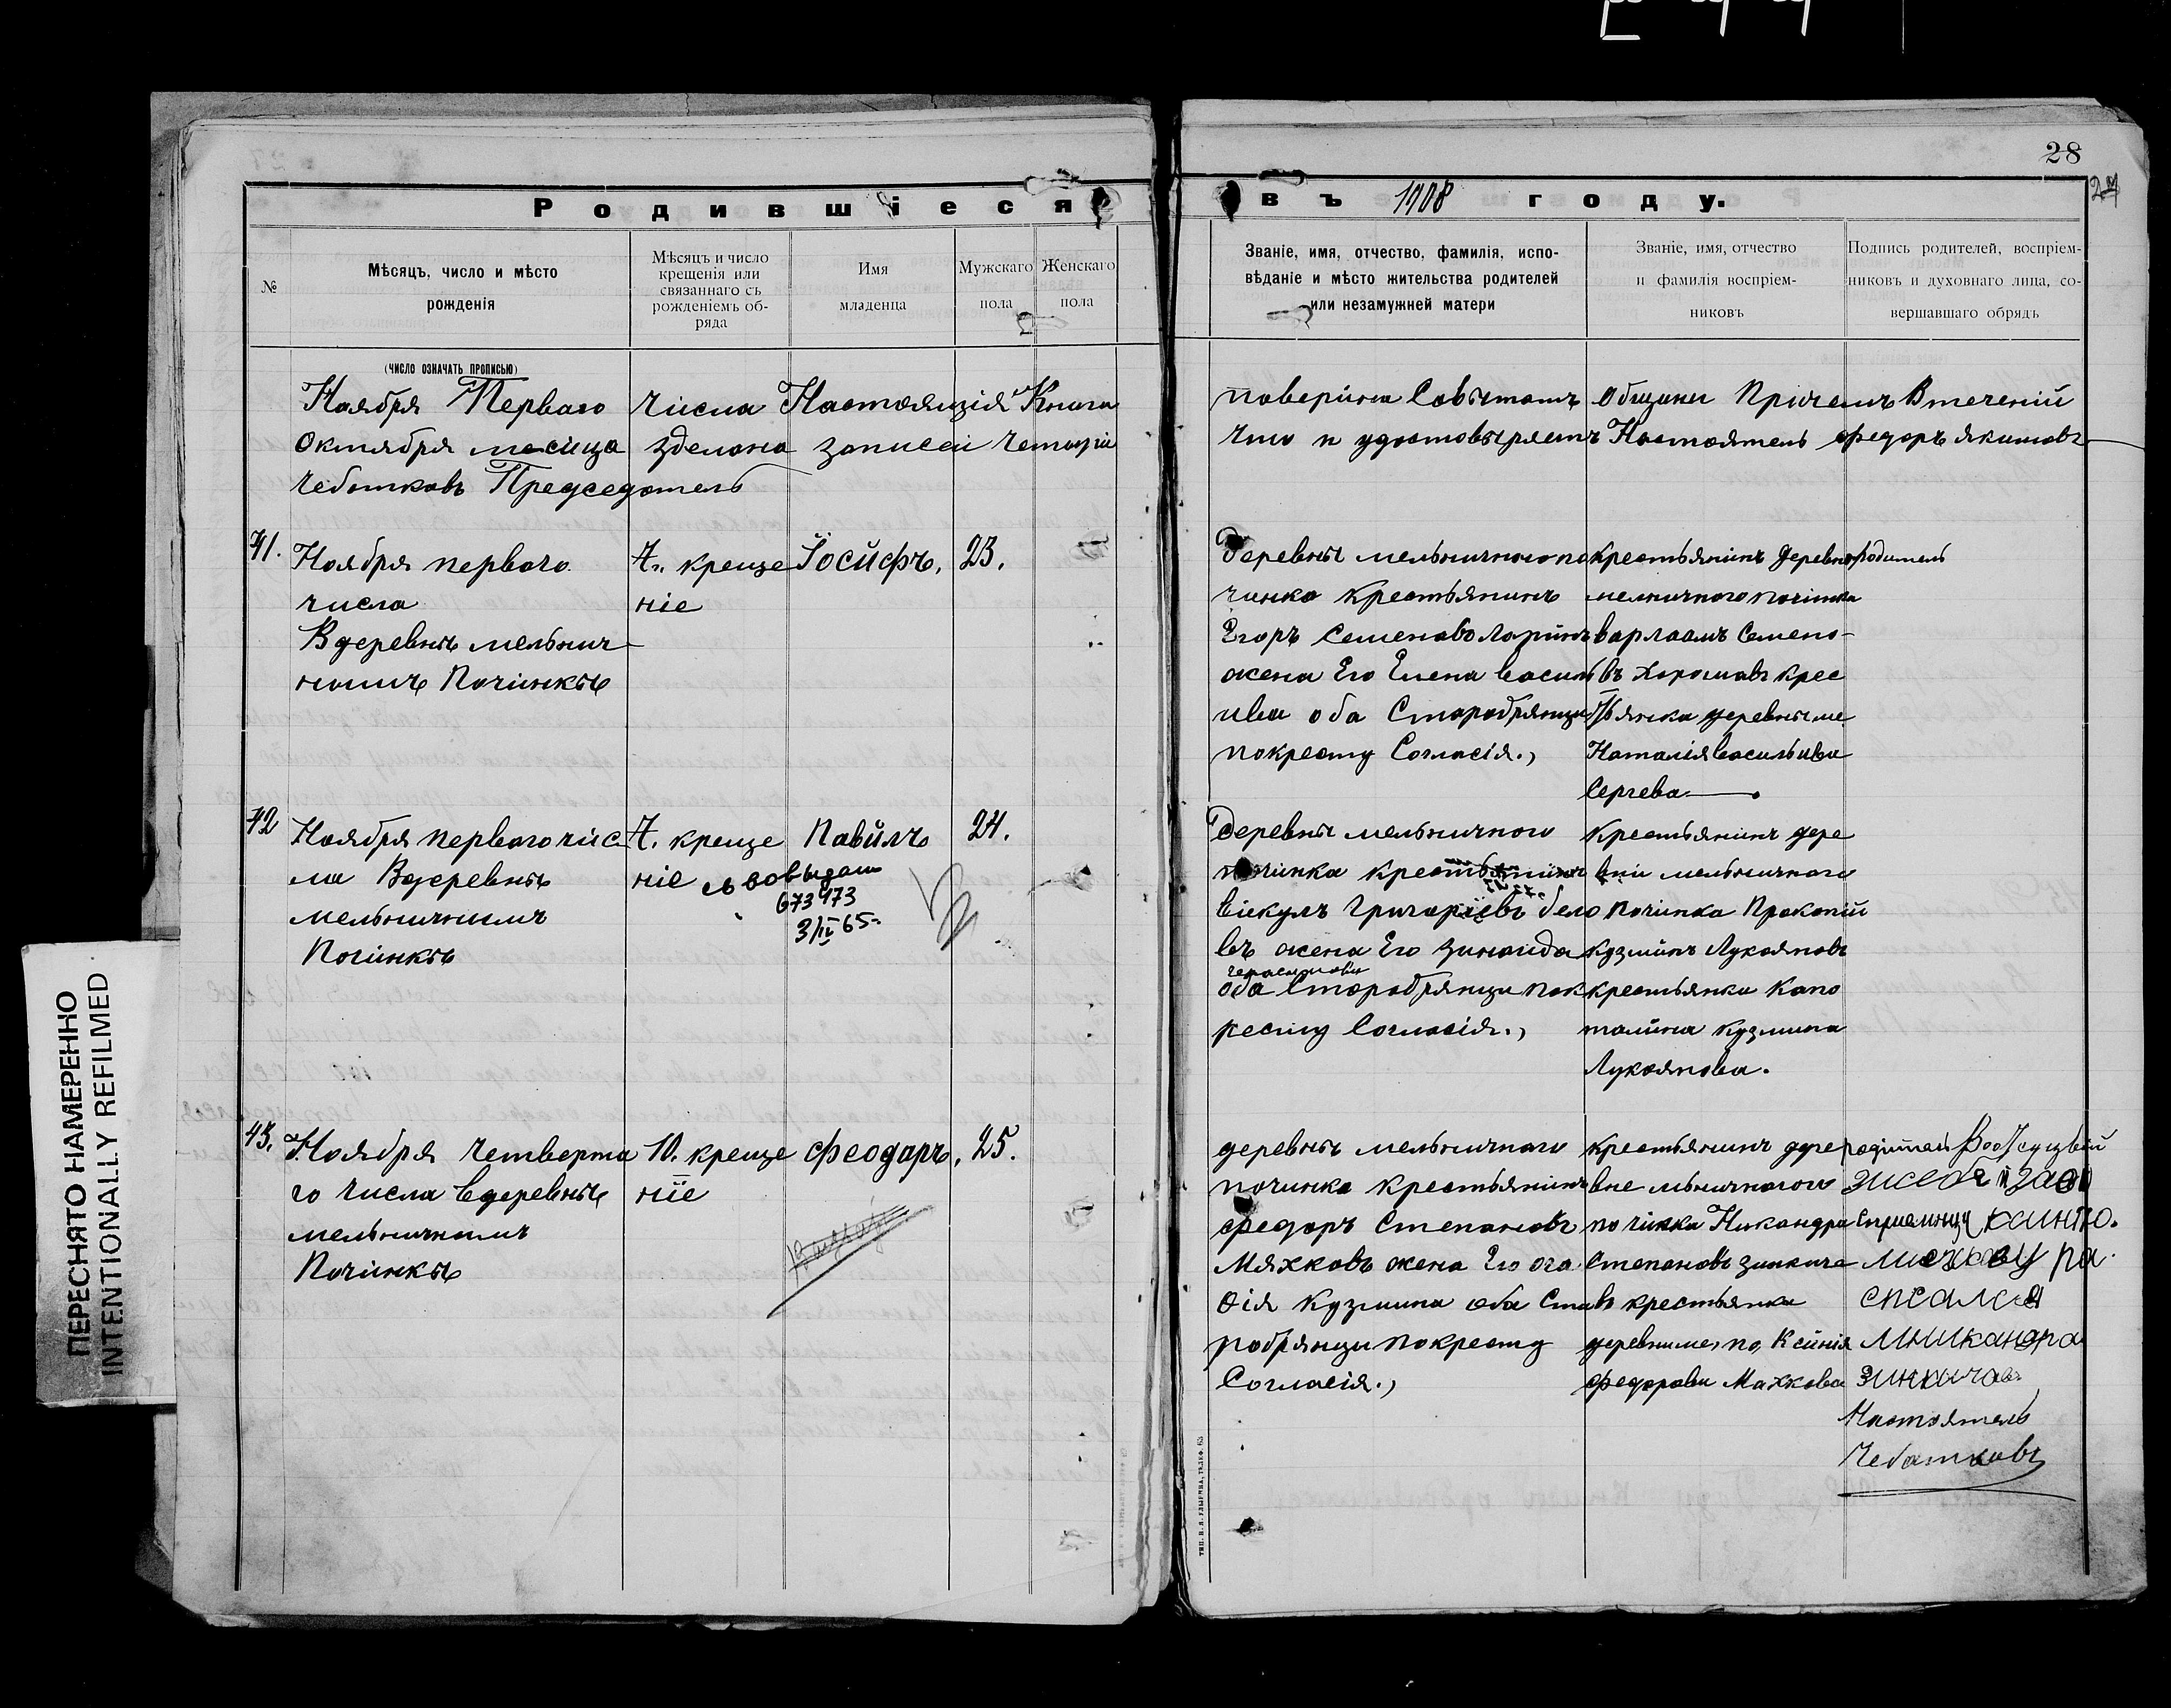 28
27
Родившіеся
въ 1908 году.
№
Мѣсяцъ, число и мѣсто
рожденія
Мѣсяцъ и число
крещенія или
связаннаго съ
рожденіемъ об-
ряда
Имя
младенца
Мужскаго
пола
Женскаго
пола
Званіе, имя, отчество, фамилія, испо-
вѣданіе и мѣсто жительства родителей
или незамужней матери
Званіе, имя, отчество
и фамилія воспріем-
никовъ
Подпись родителей, воспріем-
никовъ и духовнаго лица, со-
вершавшаго обрядъ
(число означать прописью)
Ноября Перваго числа Настоящія Книга поверіна Совѣтомъ общины Прічемъ Втеченій
Октября месица зделона записей четыри что и удостовѣряетъ Настоятель федоръ якимовъ
Чеботковъ Председатель
41.
Ноября первого
числа
Вдеревнѣ мельнич
номъ Починкѣ
7. креще
ніе
Іосифъ,
23.
деревнѣ мельничного по
чинка крестьянинъ
Егоръ Семеновъ Ларинъ
жена Его Елена васил
ива оба Старобрянцы
покресту Согласія.,
крестьянинъ деревнѣ
мелничного почінка
варлаамъ Семено-
въ Хорошавъ крес
тьянка деревны ме
Наталія васильива
Сергева
родитель
42
Ноября первого чис
ла Вдеревнѣ
мельничнымъ
Починкѣ
7. креще
ніе
св во выдан
673473
3/IV 65г.
Павилъ
24.
деревнѣ мельничного
починка крестьянинъ
віекулъ григоріевъ бело
въ жена Его зиноида
герасимова
оба Старобрянцы пок
ресту Согласія.,
Крестьянинъ дере
вни мельничного
починка Прокопій
кузминъ Лукояновъ
крестьянка Капо
толина кузмина
Лукоянова.
43.
Ноября четверта
го числа вдеревнѣ
мельничнымъ
Починкѣ
10. креще
ніе
феодаръ,
25.
деревнѣ мельничного
починка крестьянинъ
федоръ Степановъ
Мяхковъ жена Его ога
фія Кузмина оба Ста
робрянцы покресту
Согласія.,
крестьянинъ дере
вне мьничногого
почінка Никандра
Степановъ зинкича
въ крестьянка
деревниме, по, Ксинія
федорова Махкова
за
мяхкову ра
списался
мникандра
зинкичавъ
Настоятель
Чебатковъ
ПЕРЕСНЯТО НАМЕРЕННО
INTENTIONALLY REFILMED